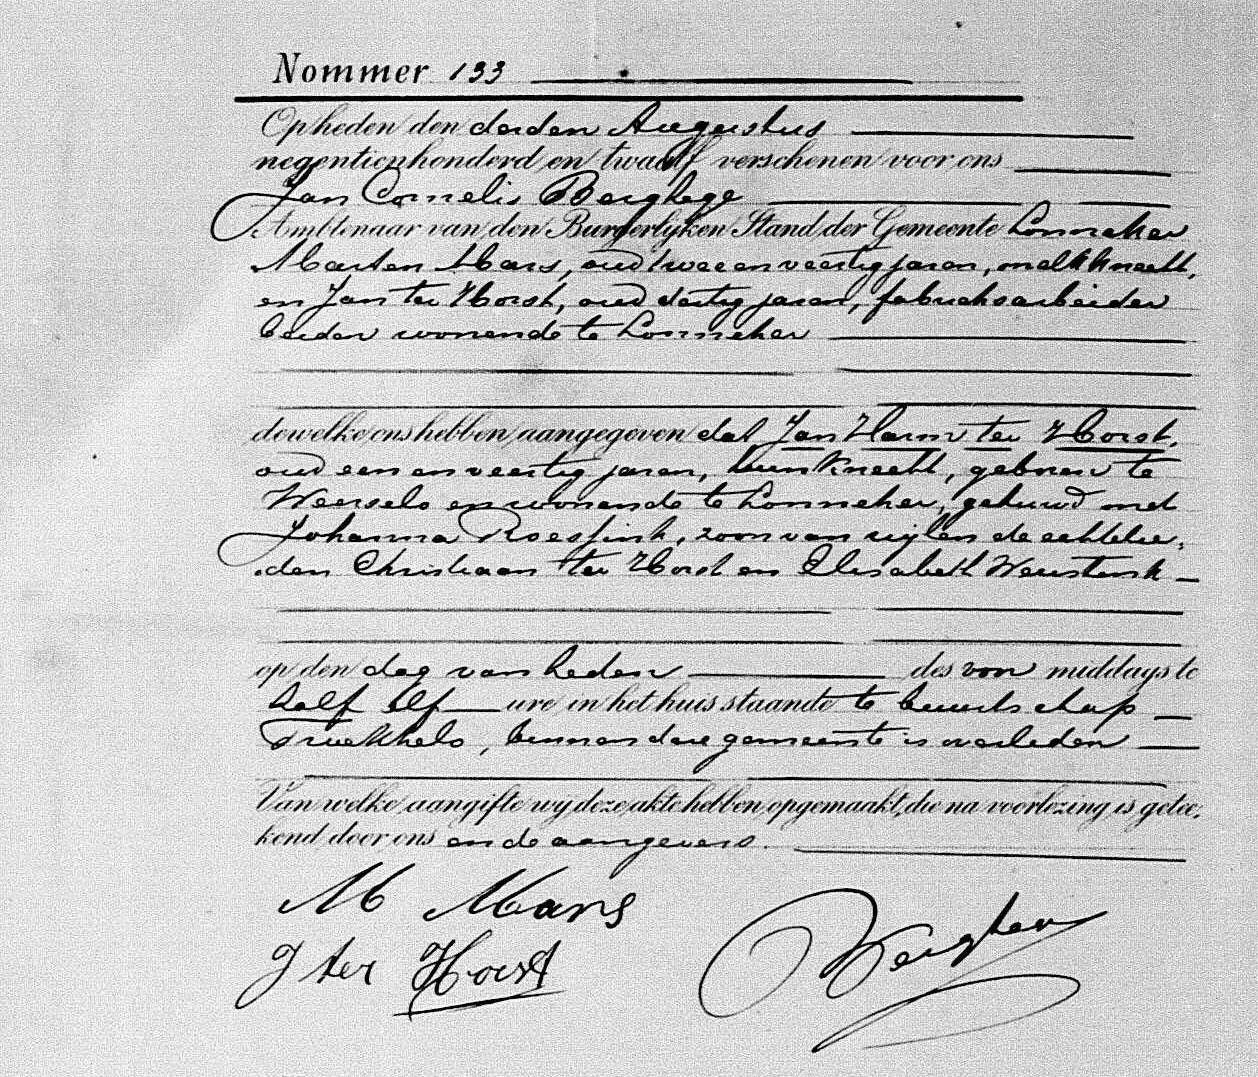 Nommer 133
Op heden den derden Augustus
negentienhonderd en twaalf verschenen voor ons
Jan Cornelis Berghege
Ambtenaar van den Burgerlijken Stand der Gemeente Lonneker
Marten Mars, oud twee en veertig jaren, melkknecht,
en Jan ter Horst, oud dertig jaren, fabrieksarbeider
beiden wonende te Lonneker
dewelke ons hebben aangegeven dat Jan Harm ter Horst,
oud een en veertig jaren, tuinknecht, geboren te
Weerselo en wonende te Lonneker, gehuwd met
Johanna Roessink, zoon van wijlen de echtelie,
den Christiaan ter Horst en Elisabeth Weustink
op den dag van heden des voor middags te
half elf ure in het huis staande te buurtschap
Twekkelo, binnen deze gemeente is overleden
Van welke aangifte wij deze akte hebben opgemaakt, die na voorlezing is getee,
kend door ons en de aangevers.
M Mars
J ter Horst